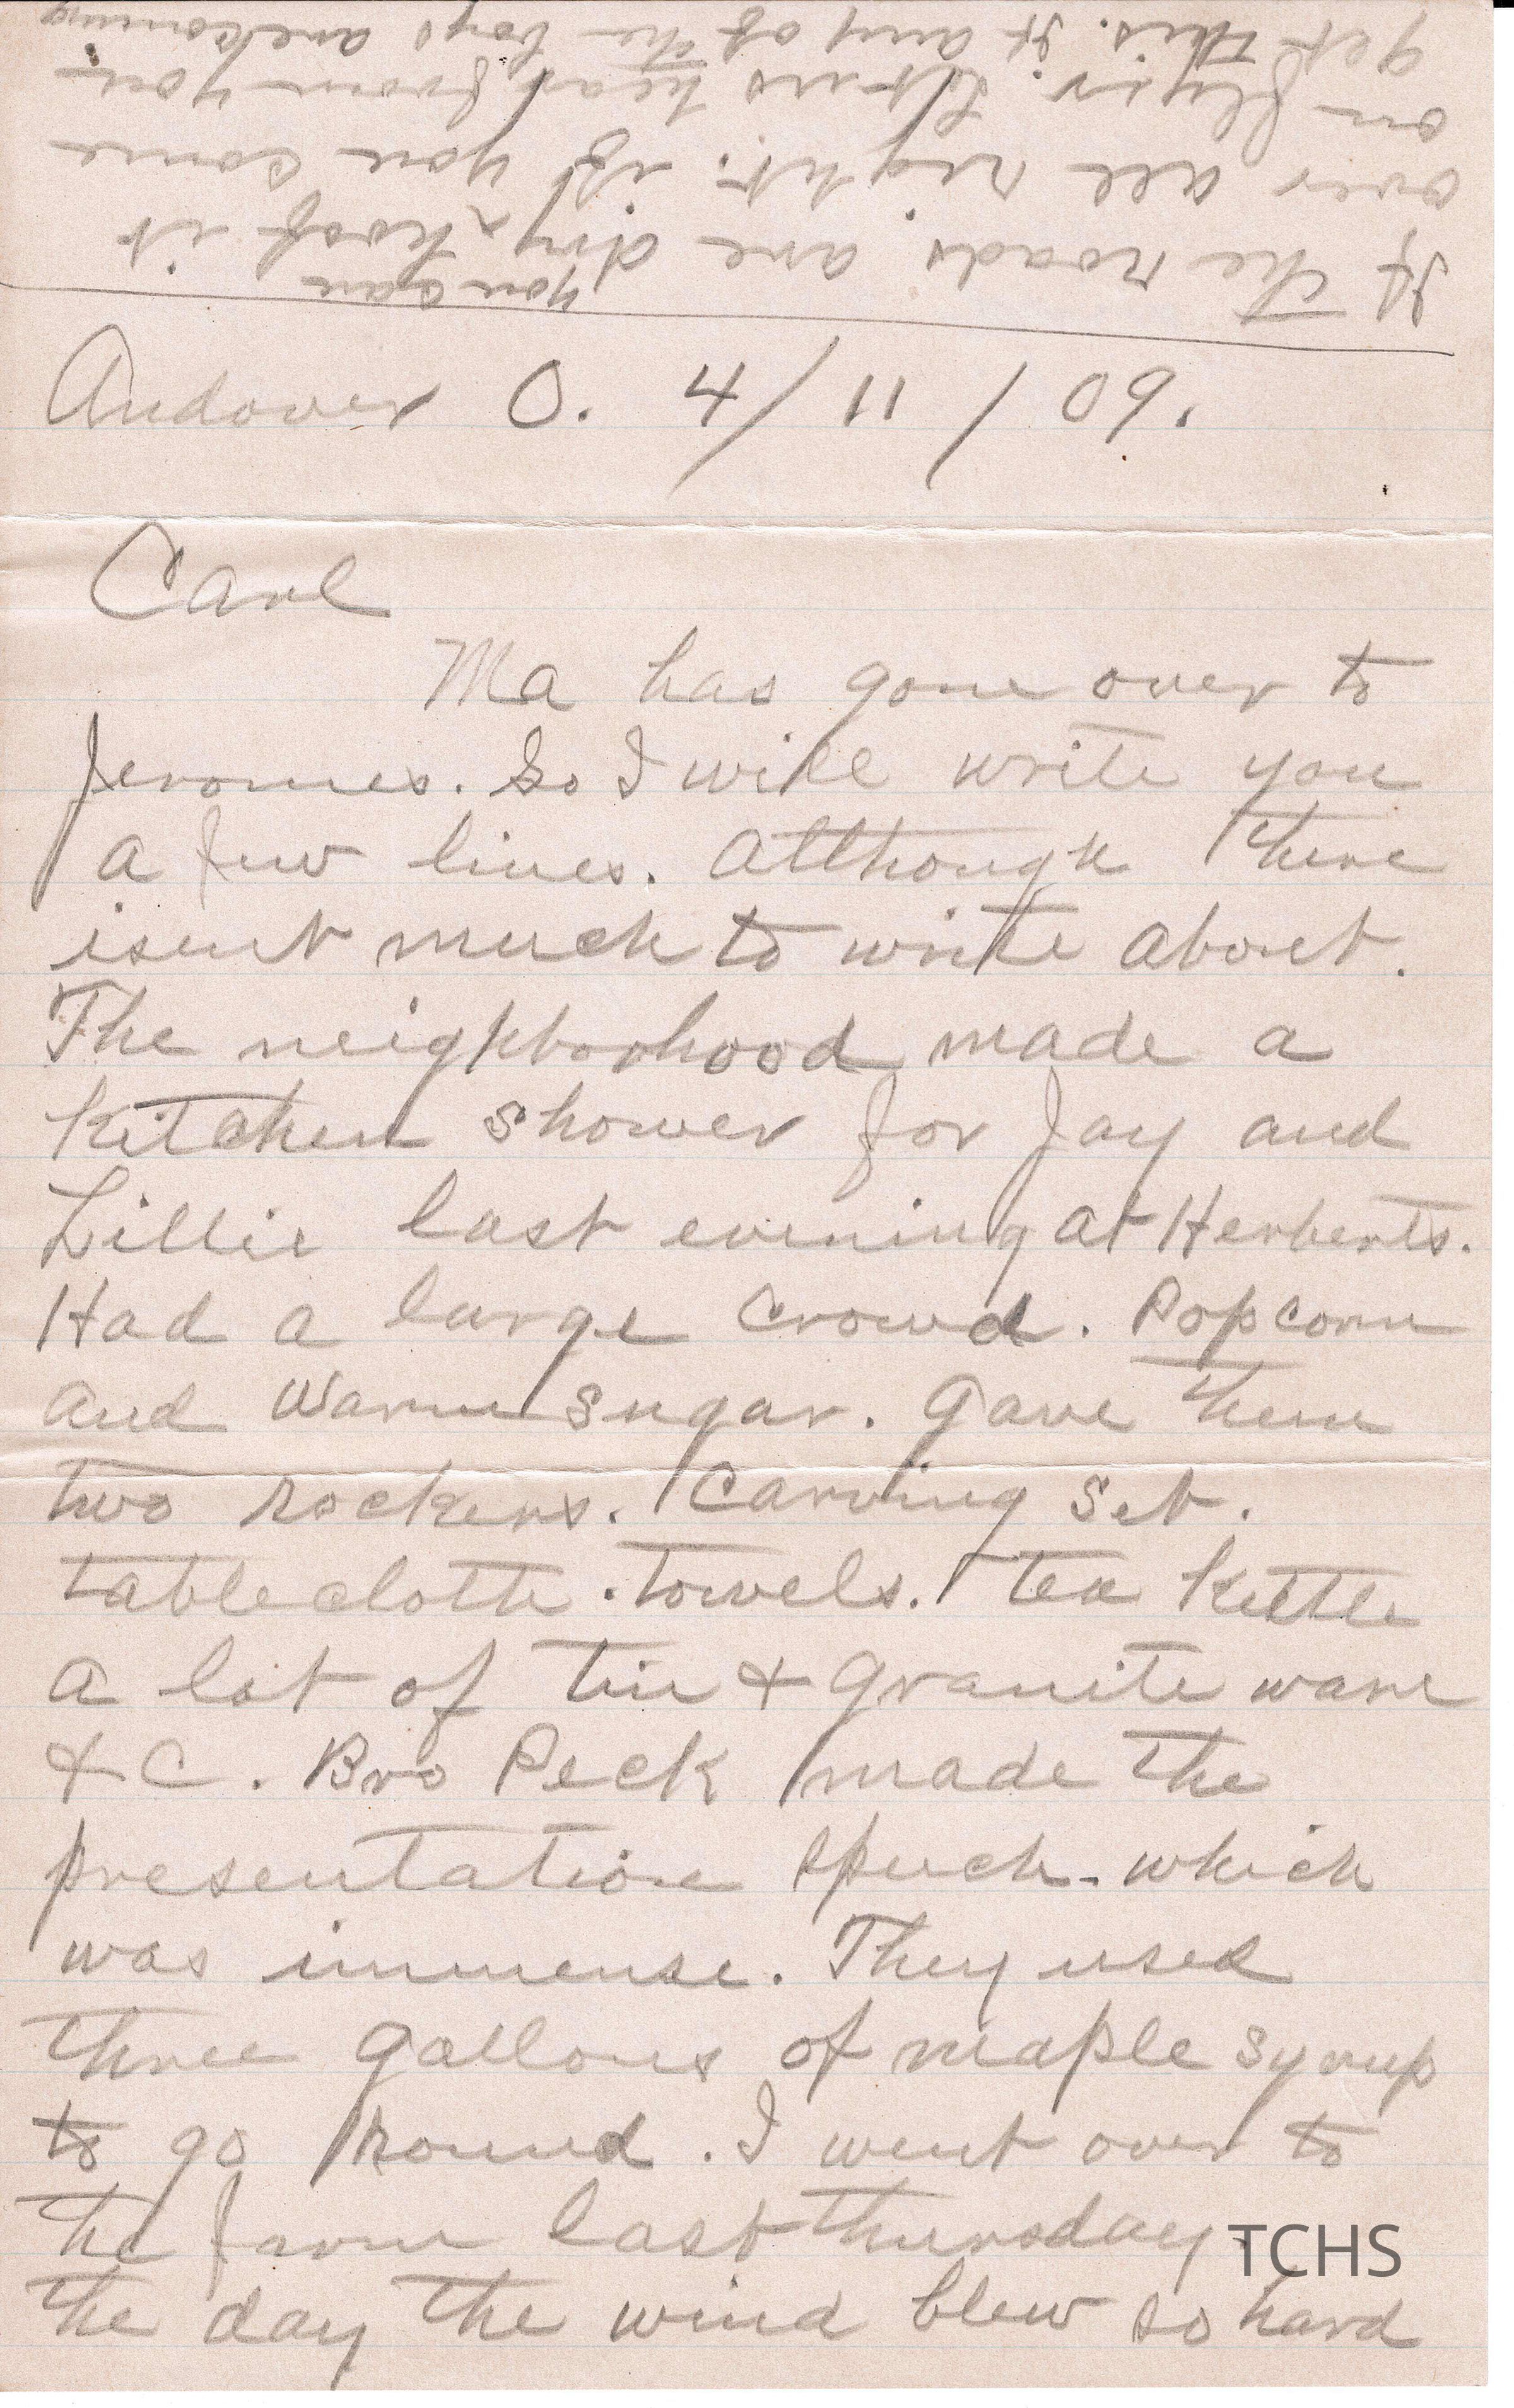 Andover O. 4/11/09.
Carl
Ma has gone over to
Jeromes. So I will write you
a few lines. Although there
isent much to write about.
The neighborhood made a
kitchen shower for Jay and
Lillie last evening at Herberts.
Had a large crowd. Popcorn
and warm sugar. Gave them
two rockers. Carving set.
tablecloth. towels. tea kettle
a lot of tin & granite ware
& C. Bro Peck made the
presentation speech - which
was immense. They used
three gallons of maple syrup
to go round. I went over to
the farm last thursday.
the day the wind blew so hard
TCHS
If the roads are dry you can hoof it
over all right. if you come
on flyer. Let us hear from you
get this. If any of the boys are coming